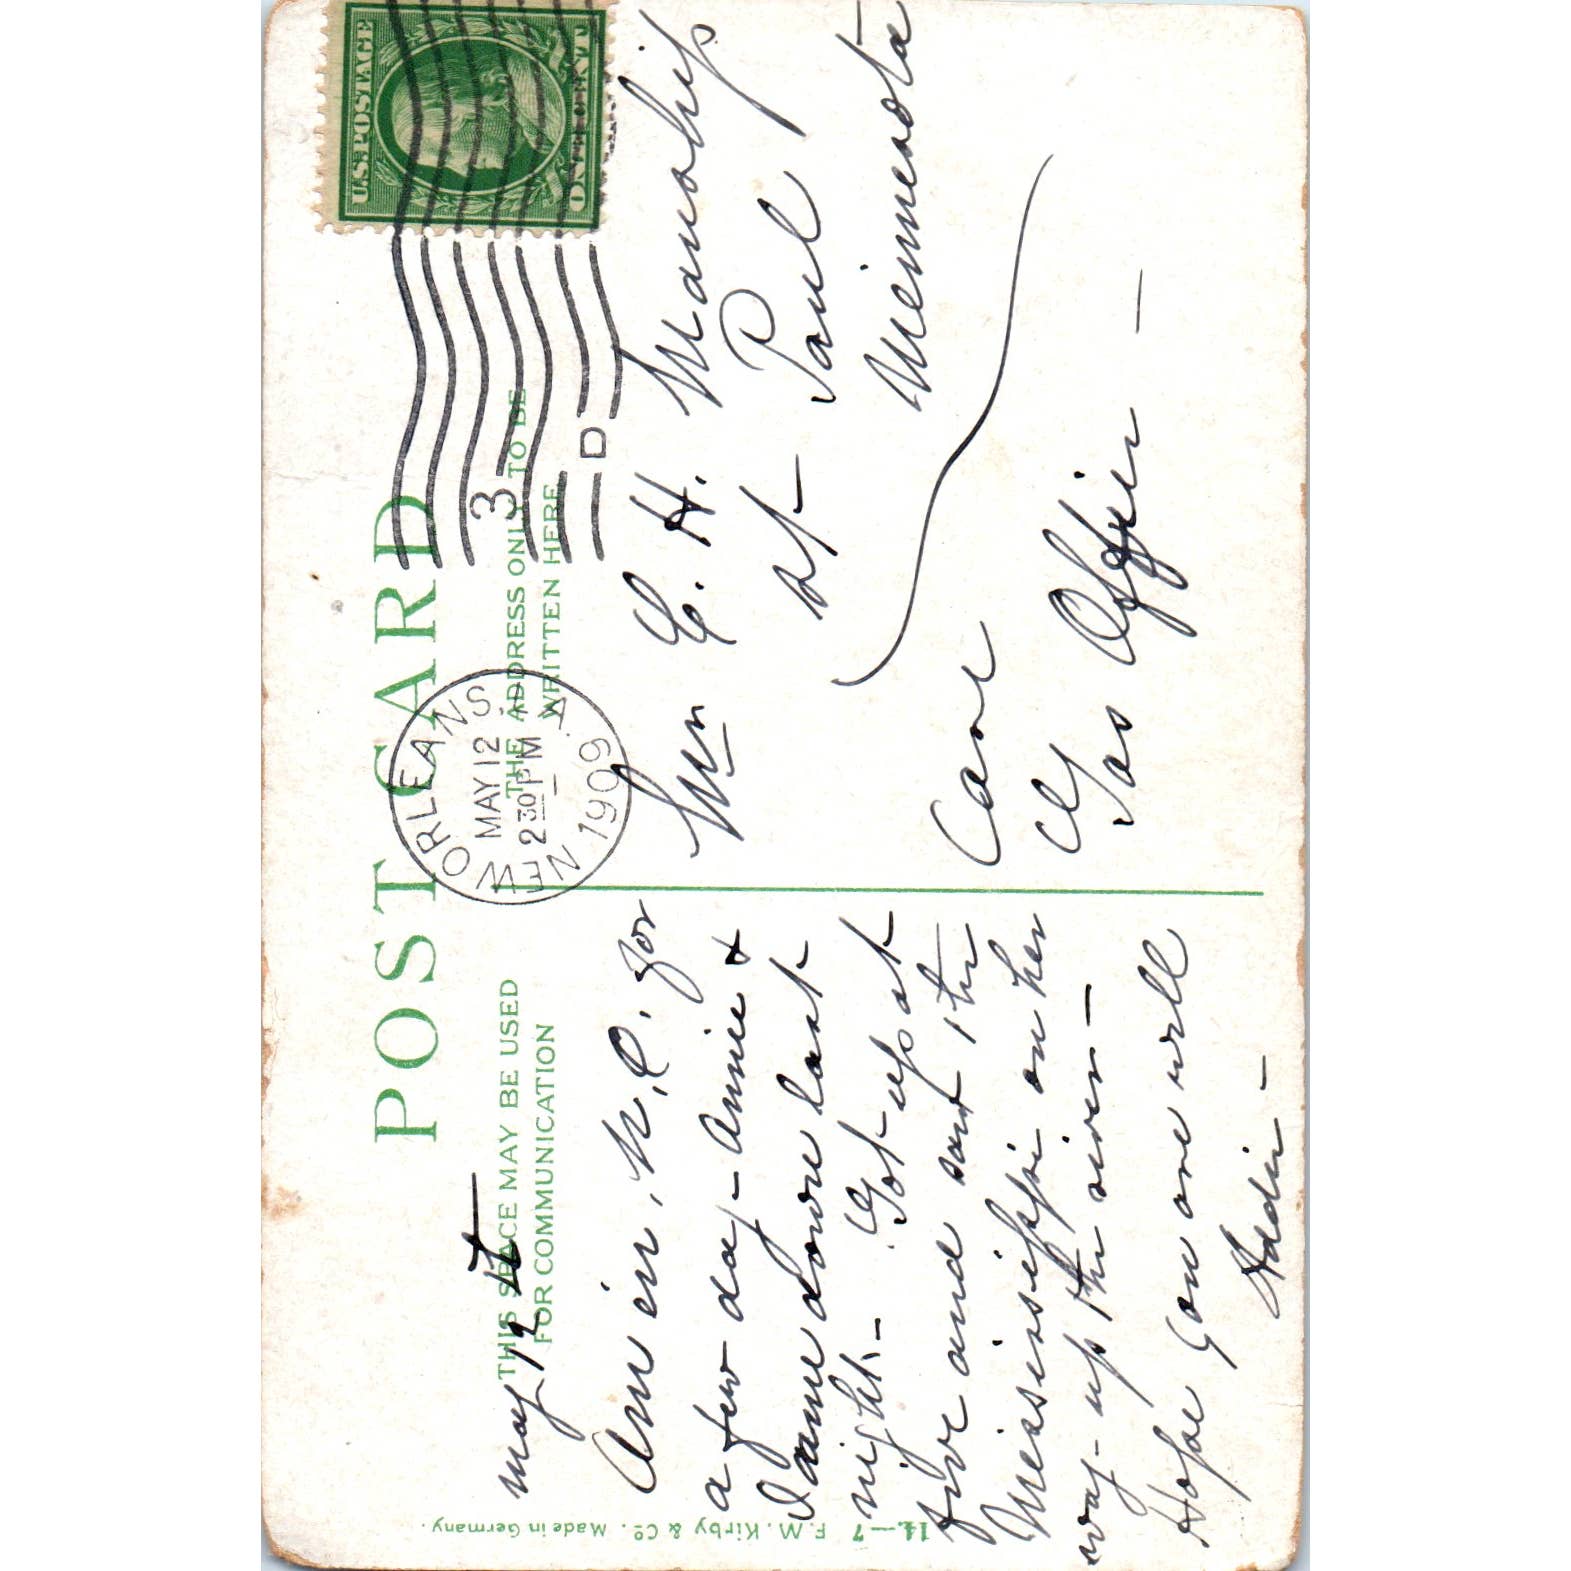 POST CARD
THIS SPACE MAY BE USED
FOR COMMUNICATION
THE ADDRESS ONLY TO BE
WRITTEN HERE
NEW ORLEANS, LA.
MAY 12
2 30 PM
1909
3
D
U.S. POSTAGE
ONE CENT
May 12th
Am in N.O. for
a few day - Annie &
I came down last
night - Got up at
five and saw the
Mississippi on her
way - up the river -
Hope you are well
Addie -
Mr E. H. Manship
St Paul
Minnesota
Care
Gas Office -
14-7 F. M. Kirby & Co. Made in Germany.